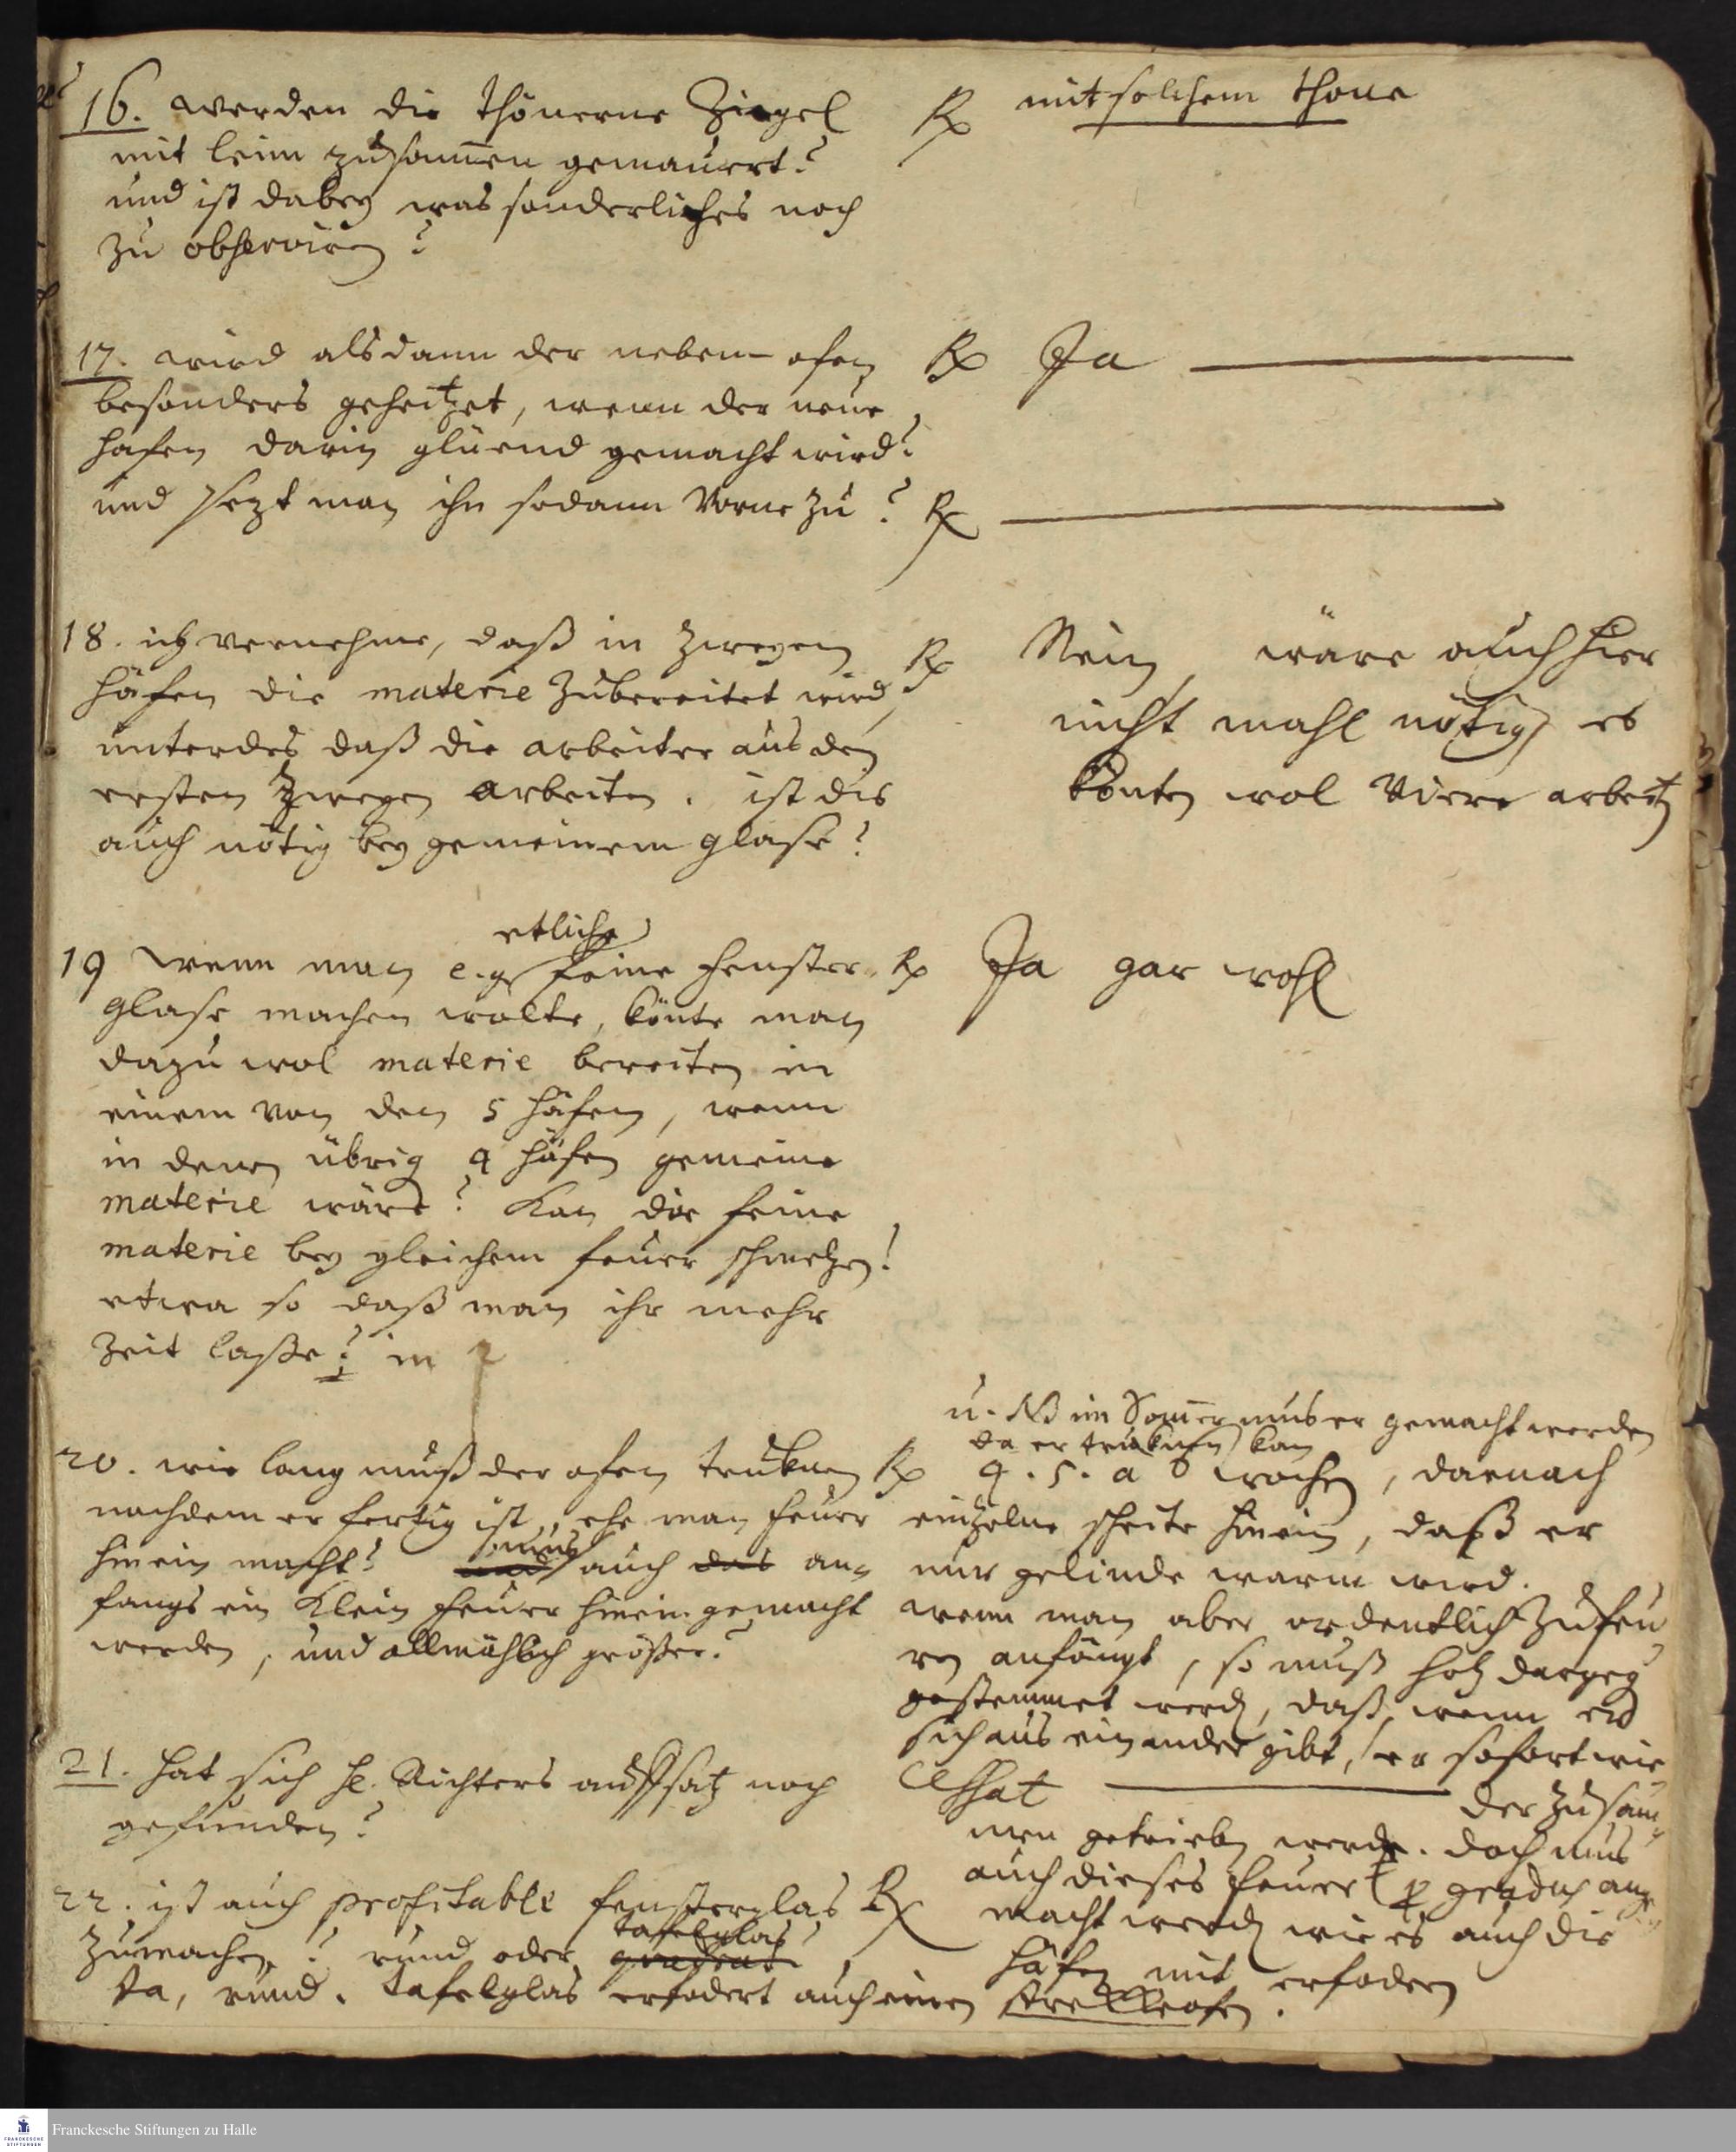 16. werden die thönerne Ziegel
mit leim zusam̄en gemauert?
und ist dabey was sonderliches noch
zu observiren?
Rx mit solchem thone
17. wird alsdann der neben-ofen
besonders geheitzet, wenn der neue
hafen darin glüend gemacht wird?
und sezt man ihn sodann vorne zu?
Rx Ja
Rx
18. ich vernehme, daß in zweyen
häfen die materie zubereitet wird,
unterdes daß die arbeiter aus den
ersten zweyen arbeiten. ist dis
auch nötig bey gemeinem glase?
Rx Nein, wäre auch hier
nicht mahl nötig, es
könten wol viere arbeiten
etliche
19 wenn man e.g. feine fenster-
glase machen wolte, könte man
dazu wol materie bereiten in
einem von den 5 häfen, wenn
in denen übrig 4 häfen gemeine
materie wäre? Kan die feine
materie bey gleichem feuer schmeltzen?
etwa so daß man ihr mehr
zeit lasse? in
Rx Ja gar wohl
20. wie lang muß der ofen truknen
nachdem er fertig ist, ehe man feuer
hinein macht? und mus auch das an-
fangs ein klein feuer hinein gemacht
werden, und allmählich größer?
u. NB im Som̄er mus er gemacht werden
da er truknen kan
Rx 4. 5. a 6 wochen, darnach
eintzelne scheite hinein, daß er
nur gelinde warm wird.
wenn man aber ordentlich zu feu
ren anfängt, so muß holtz dargeg
gestemmet werden, daß, wenn er
sich aus einander gibt, er sofort wie
der zusam
men getrieben werde. doch mus
auch dieses feuer p gradus ange
macht werden wie es auch die
häfen mit erfodern
21. hat sich H. Richters aufsatz noch
gefunden?
hat
22. ist auch profitable fensterglas
zumachen? rund oder quadrat tafelglas
Rx
Ja, rund. tafelglas erfodert auch einen streckeofen.
Franckesche Stiftungen zu Halle